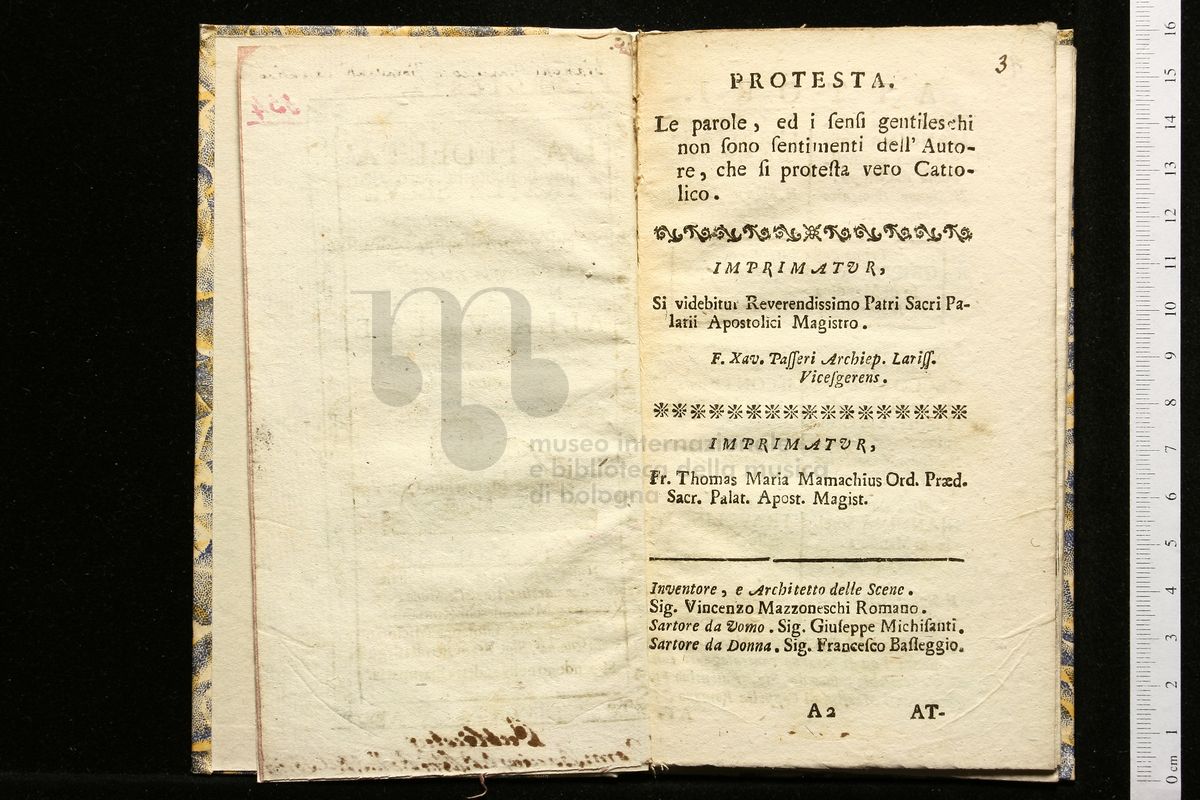 3
PROTESTA.
Le parole, ed i ſenſi gentileschi
non ſono ſentimenti dell' Auto-
re, che ſi proteſta vero Catto-
lico.
IMPRIMATUR,
Si videbitur Reverendissimo Patri Sacri Pa-
latii Apostolici Magistro.
F. Xav. Paſſeri Archiep. Lariſſ.
Viceſgerens.
IMPRIMATUR,
Fr. Thomas Maria Mamachius Ord. Præd.
Sacr. Palat. Apost. Magist.
Inventore, e Architetto delle Scene.
Sig. Vincenzo Mazzoneschi Romano.
Sartore da Uomo. Sig. Giuſeppe Michiſanti.
Sartore da Donna. Sig. Franceſco Baſſeggio.
A2 AT-
museo internazionale
e biblioteca della musica
di bologna
0 cm 1 2 3 4 5 6 7 8 9 10 11 12 13 14 15 16